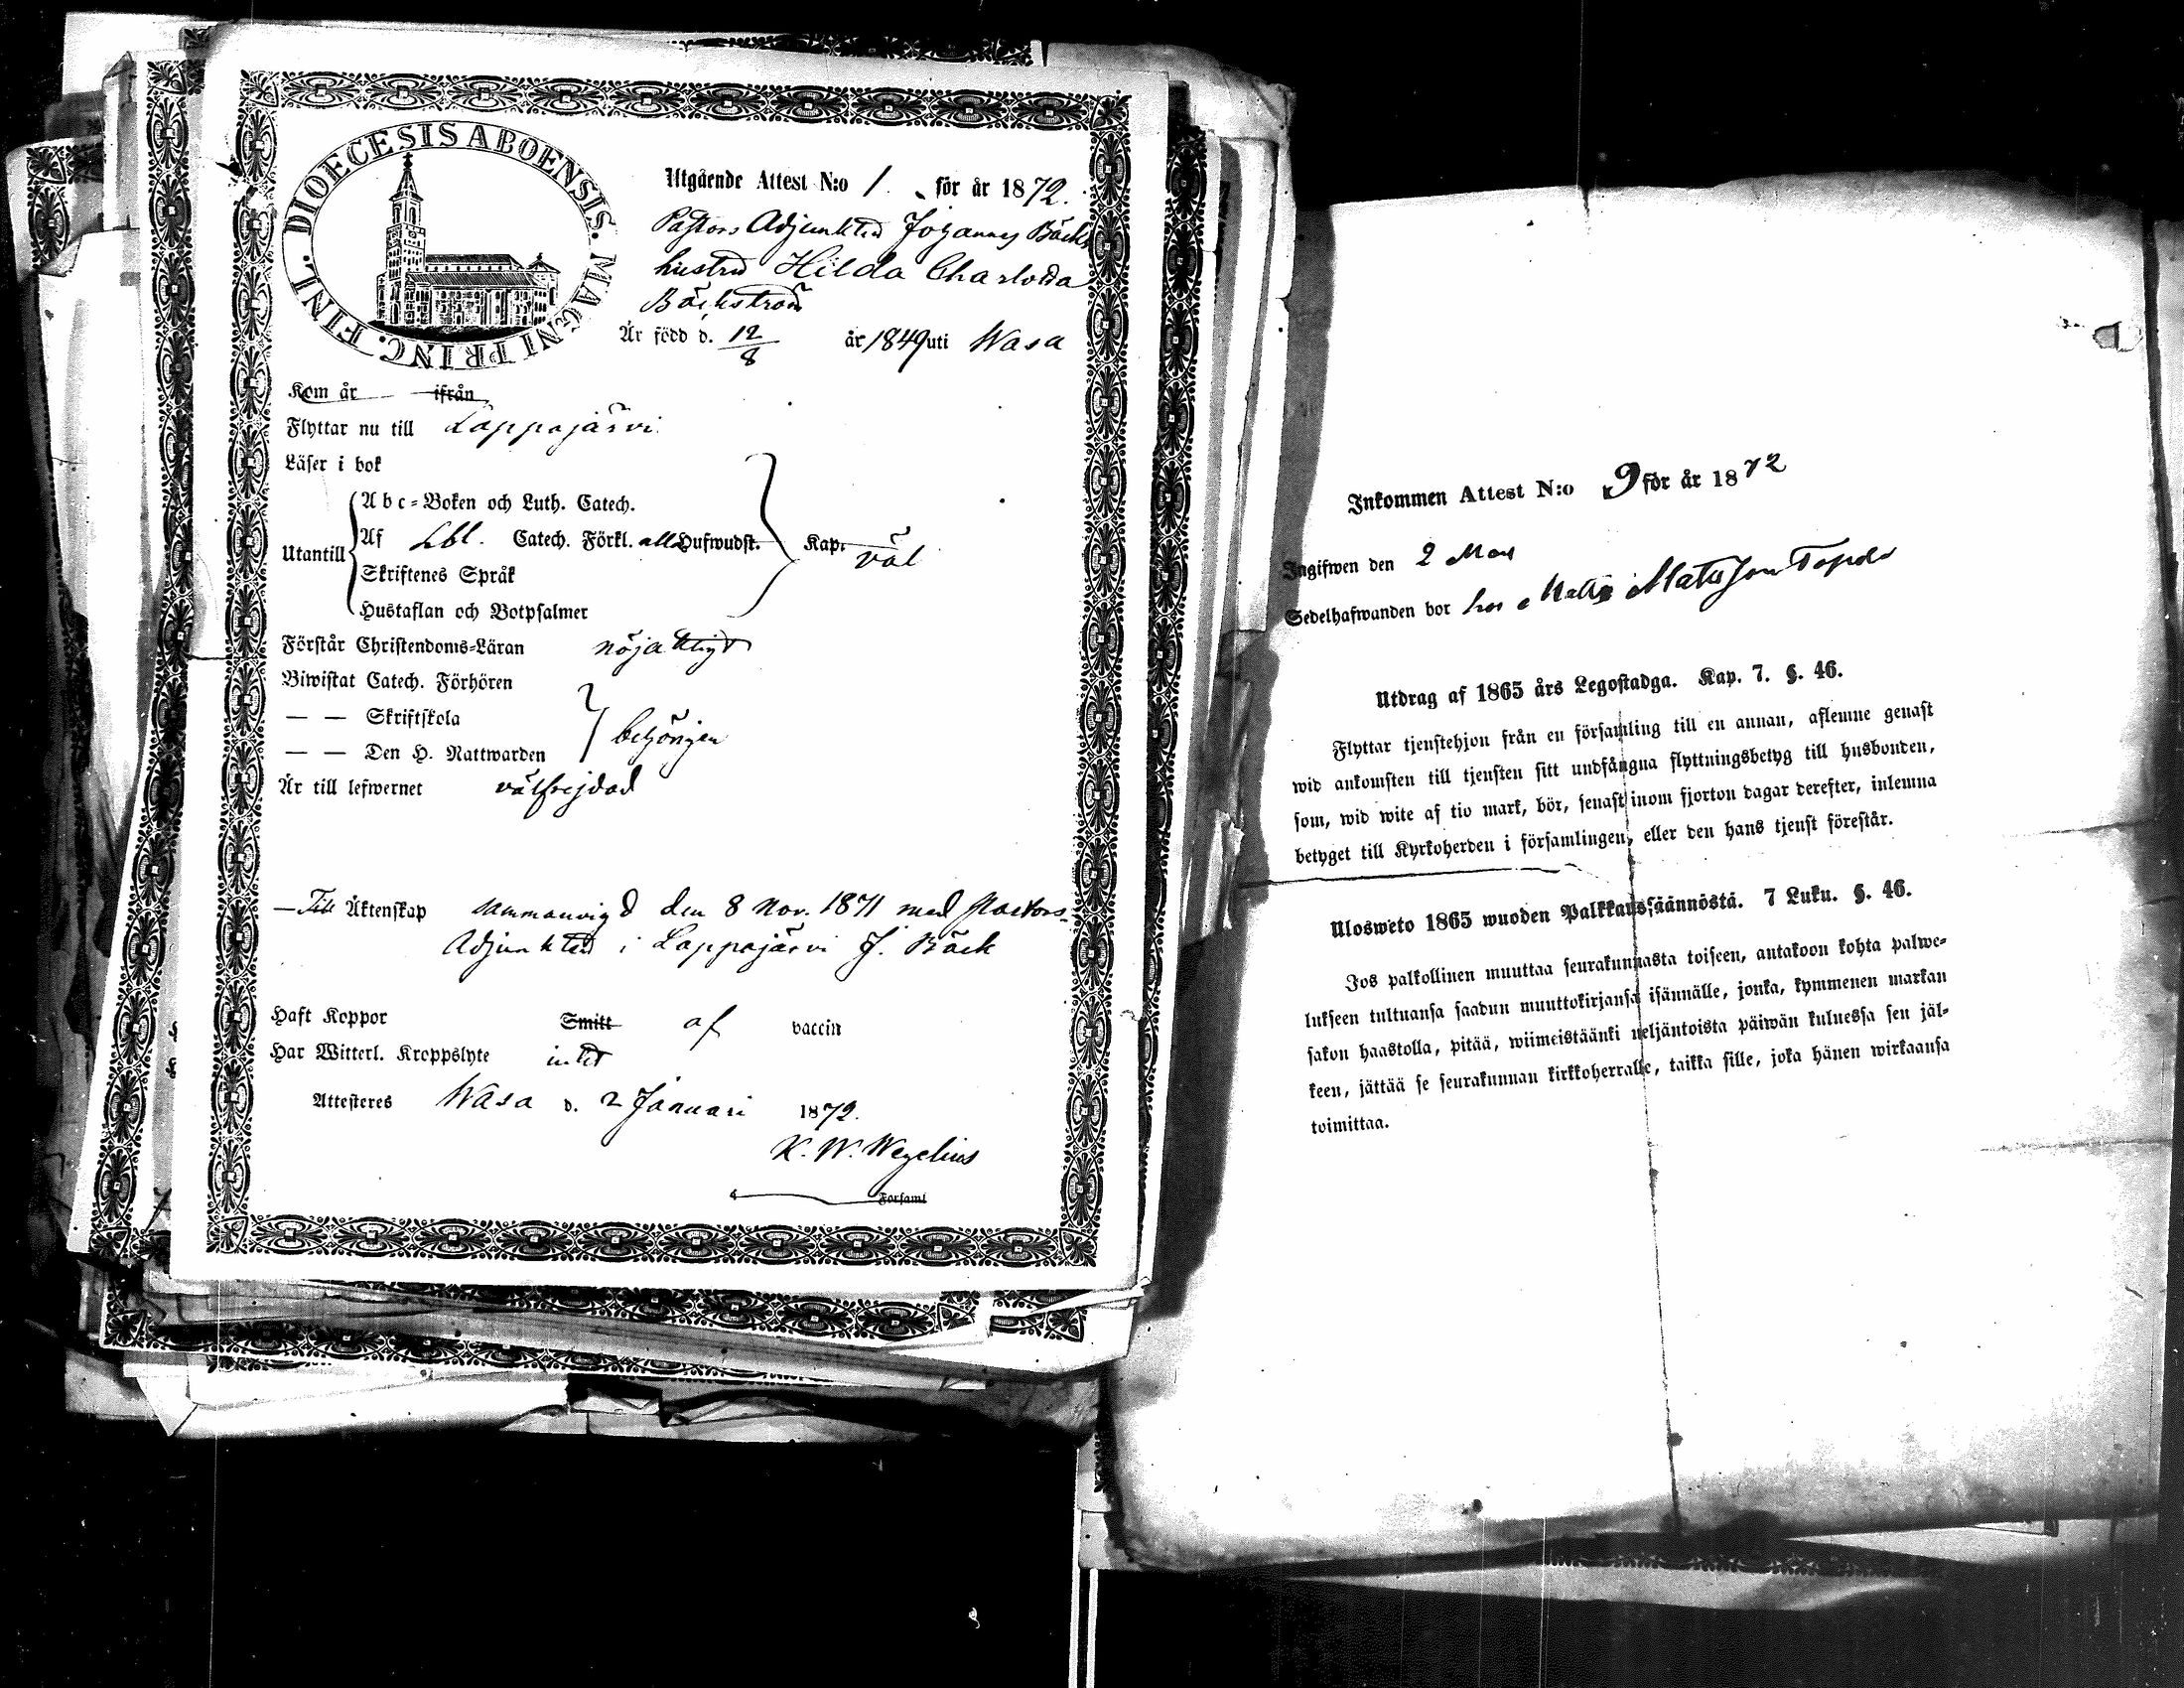 DIOECESIS ABOENSIS. MAGNI PRINC. FINL.
Utgående Attest N:o 1. för år 1872.
Pastors Adjunkten Johannes Bäcks
hustru Hilda Charlotta
Bäckström
Är född d. 12/8 år 1849 uti Wasa
Kom år ifrån
Flyttar nu till Lappajärvi
Läser i bok
Abc-Boken och Luth. Catech.
Utantill Af Lbl. Catech. Förkl. alla Hufwudst. Kap. väl
Skriftenes Språk
Hustaflan och Botpsalmer
Förstår Christendoms-Läran nöjaktigt
Biwistat Catech. Förhören
— — Skriftskola
— — Den H. Nattwarden behörigen
Är till lefwernet välfrejdad
— Till Äktenskap sammanvigd den 8 Nov. 1871 med Pastors-
Adjunkten i Lappajärvi J. Bäck
Haft Koppor Smitt af vaccin
Har Witterl. Kroppslyte intet
Attesteres Wasa d. 2 Januari 1872.
K. W. Wegelius
Forsaml
Inkommen Attest N:o 9 för år 1872
Ingifwen den 2 Mars
Sedelhafwanden bor hos Matts Matsson
Utdrag af 1865 års Legostadga. Kap. 7. §. 46.
Flyttar tjenstehjon från en församling till en annan, aflemne genast
wid ankomsten till tjensten sitt undfångna flyttningsbetyg till husbonden,
som, wid wite af tio mark, bör, senast inom fjorton dagar derefter, inlemna
betyget till Kyrkoherden i församlingen, eller den hans tjenst förestår.
Ulosweto 1865 wuoden Palkkaussäännöstä. 7 Luku. §. 46.
Jos palkollinen muuttaa seurakunnasta toiseen, antakoon kohta palwe-
lukseen tultuansa saadun muuttokirjansa isännälle, jonka, kymmenen markan
sakon haastolla, pitää, wiimeistäänki neljäntoista päiwän kuluessa sen jäl-
keen, jättää se seurakunnan kirkkoherralle, taikka sille, joka hänen wirkaansa
toimittaa.